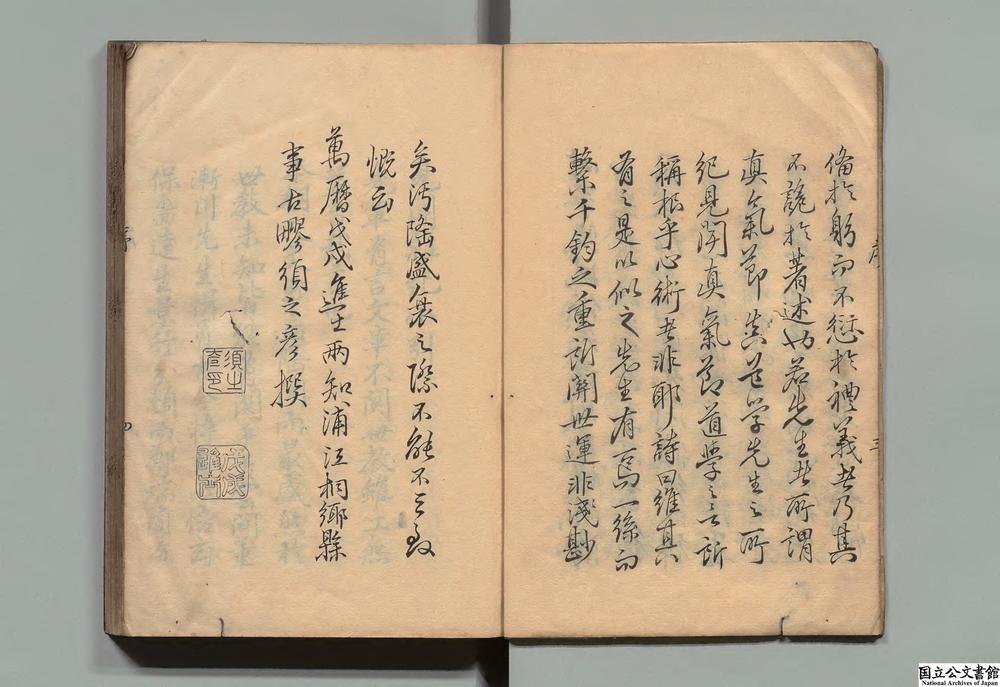 備於躬而不愆於禮義者乃其
不詭於著述也若先生者所謂
真氣節真道学先生之所
紀見聞真氣節道學之言所
稱根乎心術者非耶詩曰維其
有之是以似之先生有焉一絲而
繫千鈞之重所關世運非淺尠
矣污隆盛衰之際不能不三致
慨云
萬曆戊戌進士兩知浦江桐鄉縣
事古鄮須之彥撰
須之彥印
戊戌進士
国立公文書館
National Archives of Japan